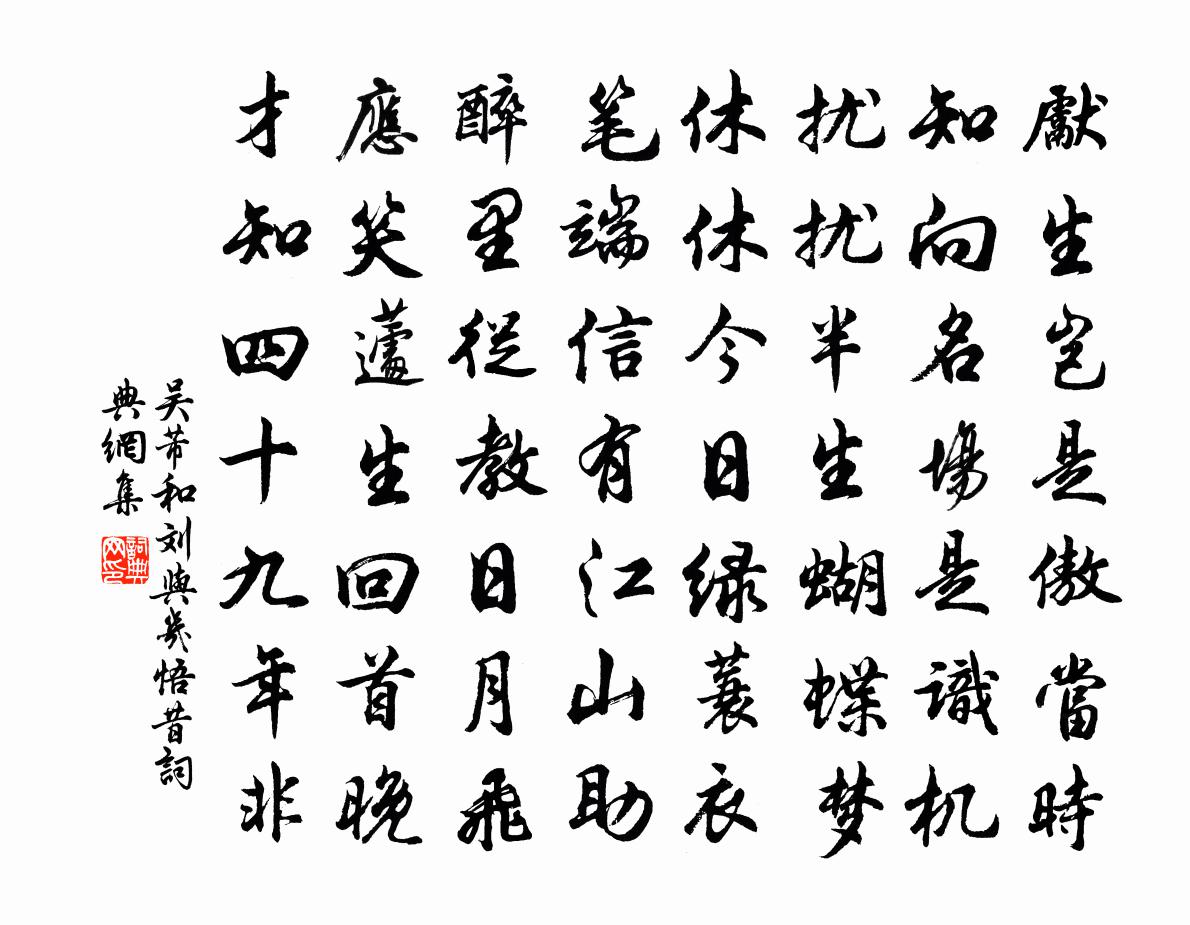 獻生岂是傲當時
知向名場是識机
扰扰半生蝴蝶梦
休休今日绿蓑衣
笔端信有江山助
醉里從教日月飛
應笑蘧生回首晚
才知四十九年非
吴芾和刘與幾悟昔詞
典網集
詞典
网印